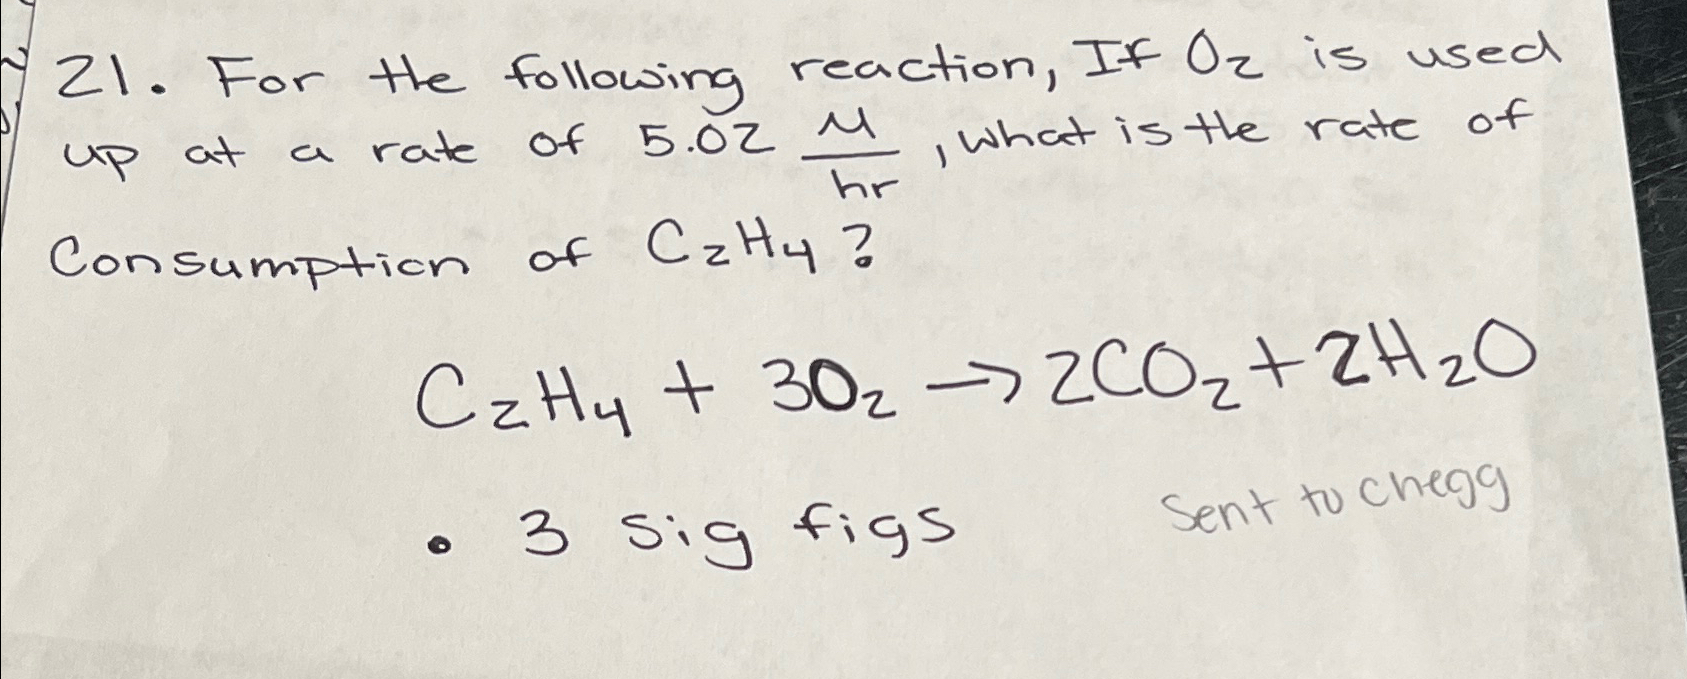 21. For the following reaction, If O₂ is used
up at a rate of 5.02 M/hr, what is the rate of
Consumption of C₂H₄?
C₂H₄ + 3O₂ → 2CO₂ + 2H₂O
• 3 sig figs
Sent to chegg